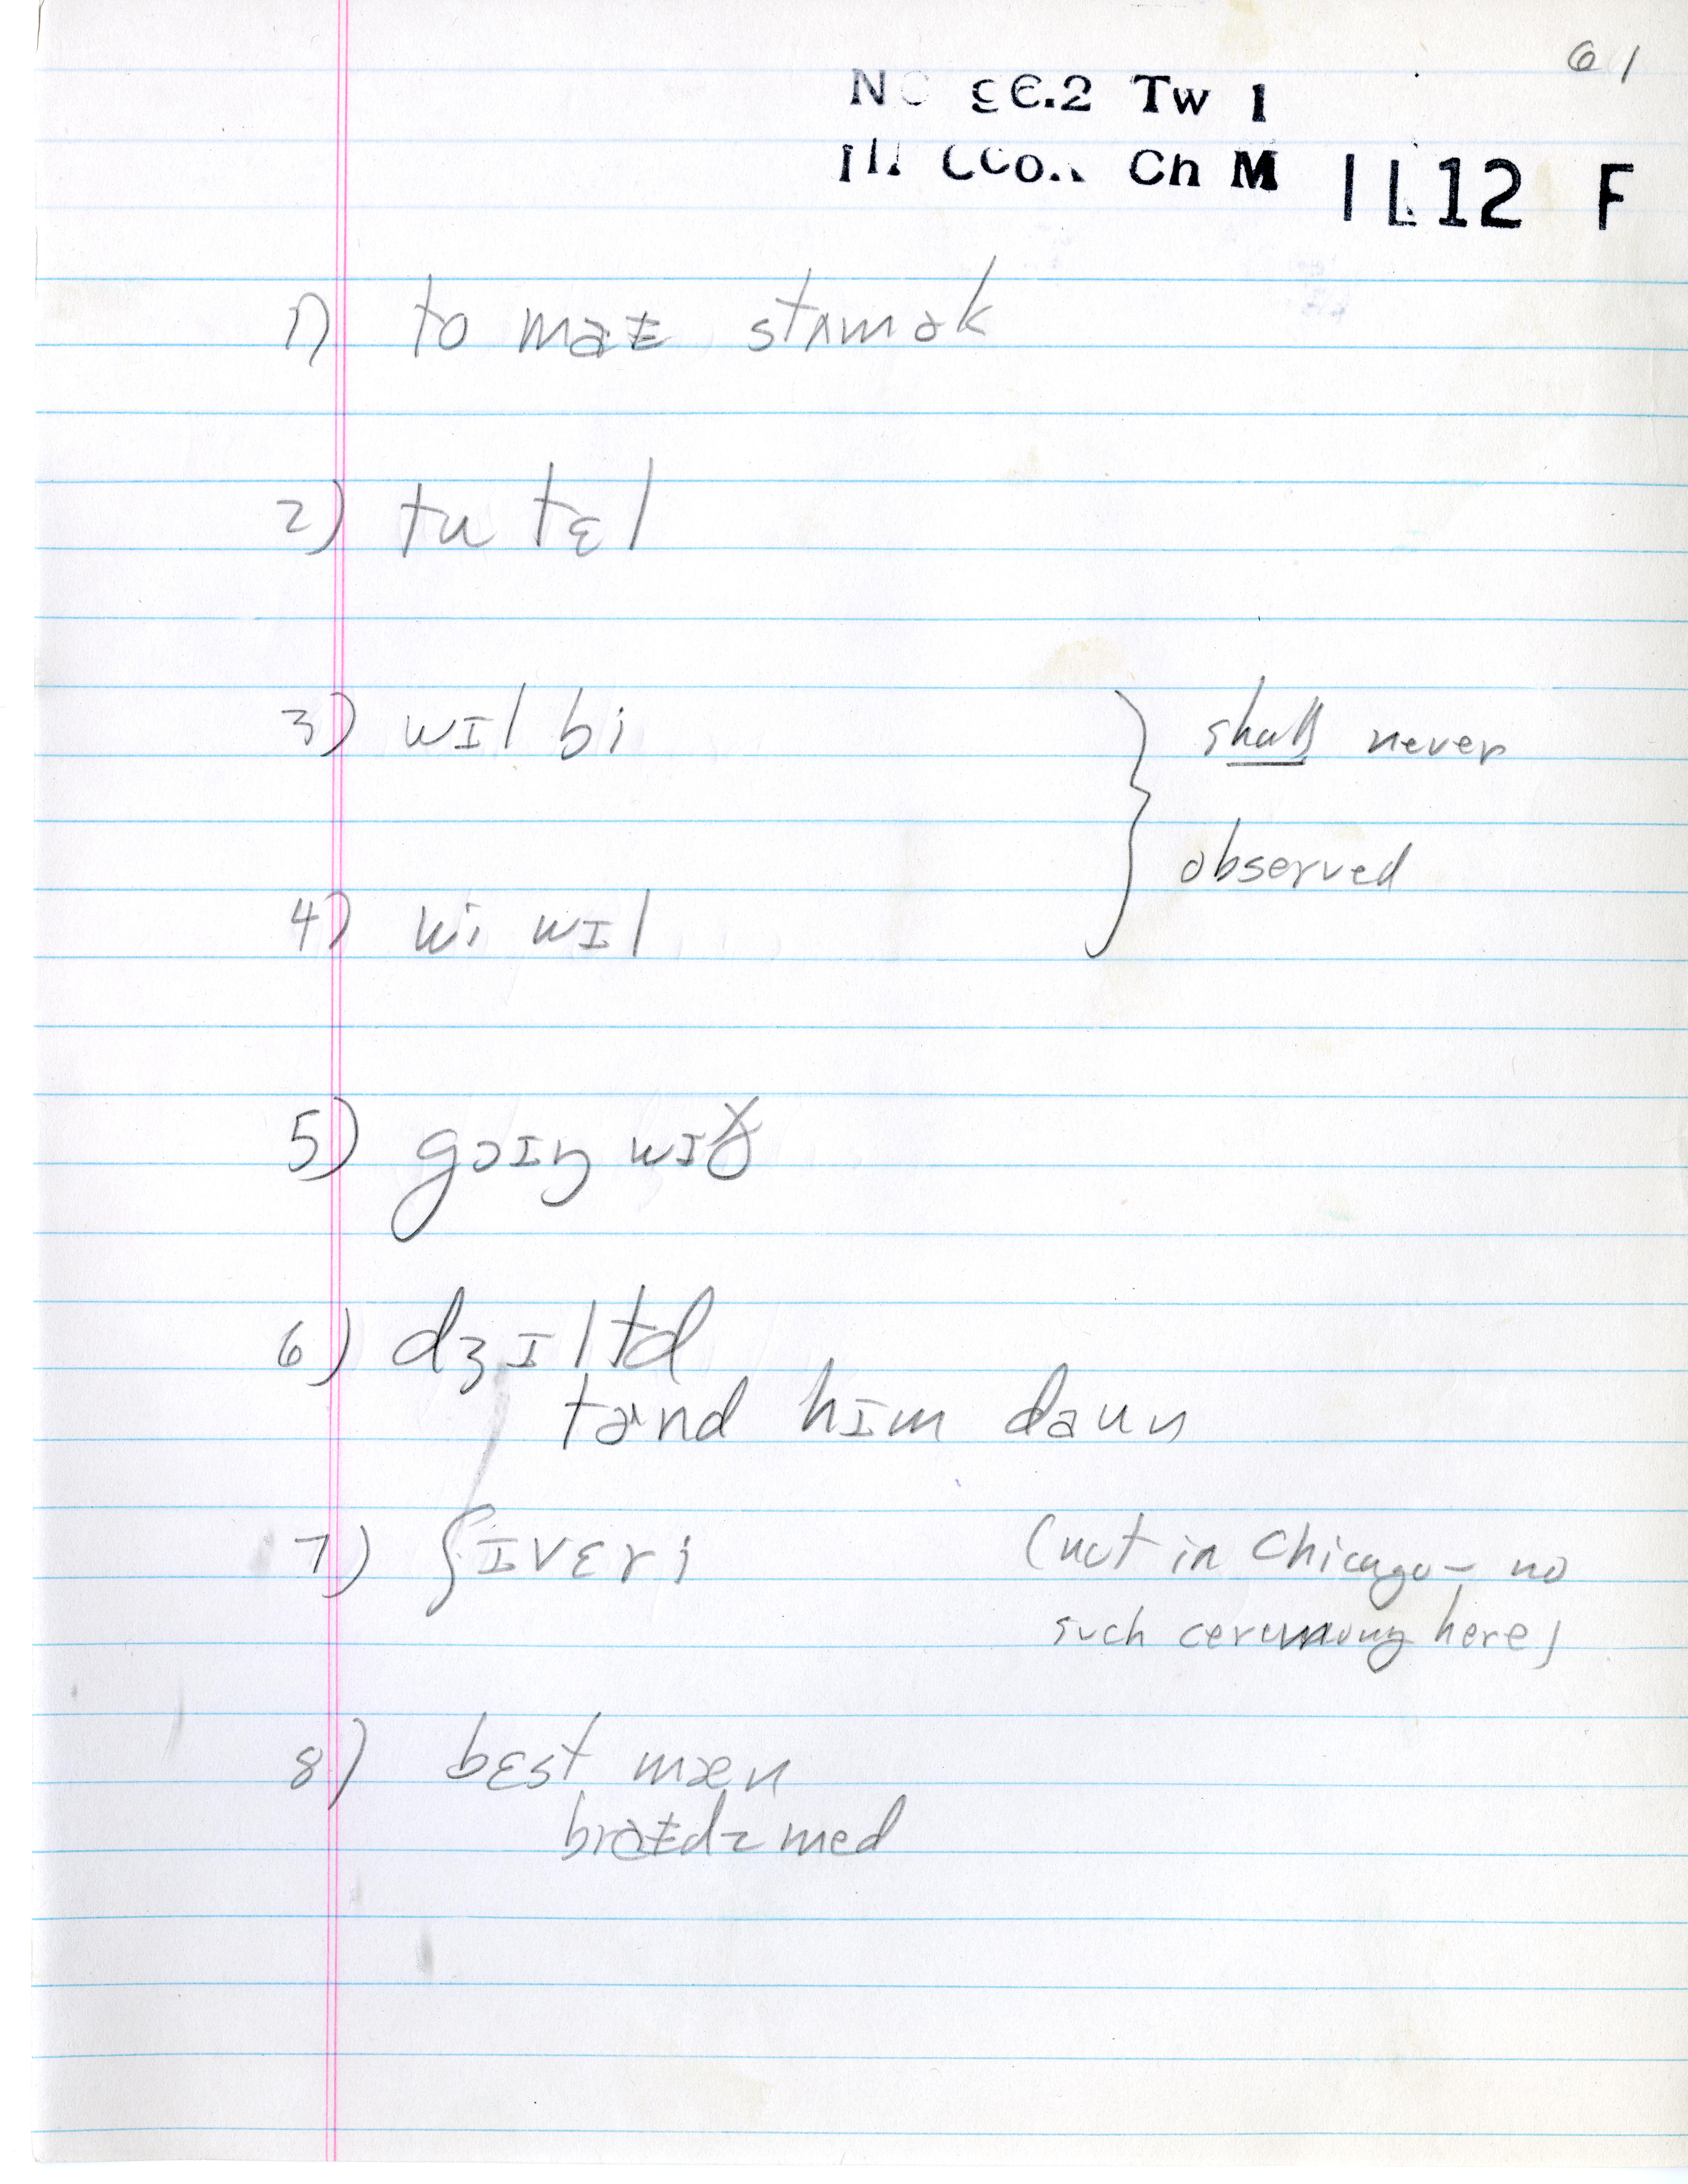 61
N 56.2 Tw 1
Ill. Coo.. Ch M IL12 F
1) to maɪ stʌmək
2) tu tɛl
3) wɪl bi } shall never
observed
4) wi wɪl
5) goɪŋ wɪð
6) dʒɪltəd
tɚnd hɪm daun
7) ʃɪvəri (not in Chicago – no
such ceremony here)
8) bɛst mæn
braɪdzmed